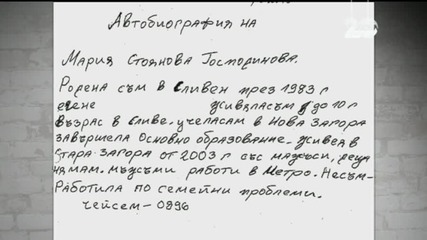 Автобиография на
Мария Стоянова Господинова.
Родена съм в Сливен през 1983 г
живяласъм до 10 г
възрас в Сливе. учеласам в Нова Загора
завършела Основно образование. живея в
Стара Загора от 2003 г със мажъси, деца
нямам. мъжъми работи в Метро. Несъм-
Работила по семейни проблеми.
чейсем-0896